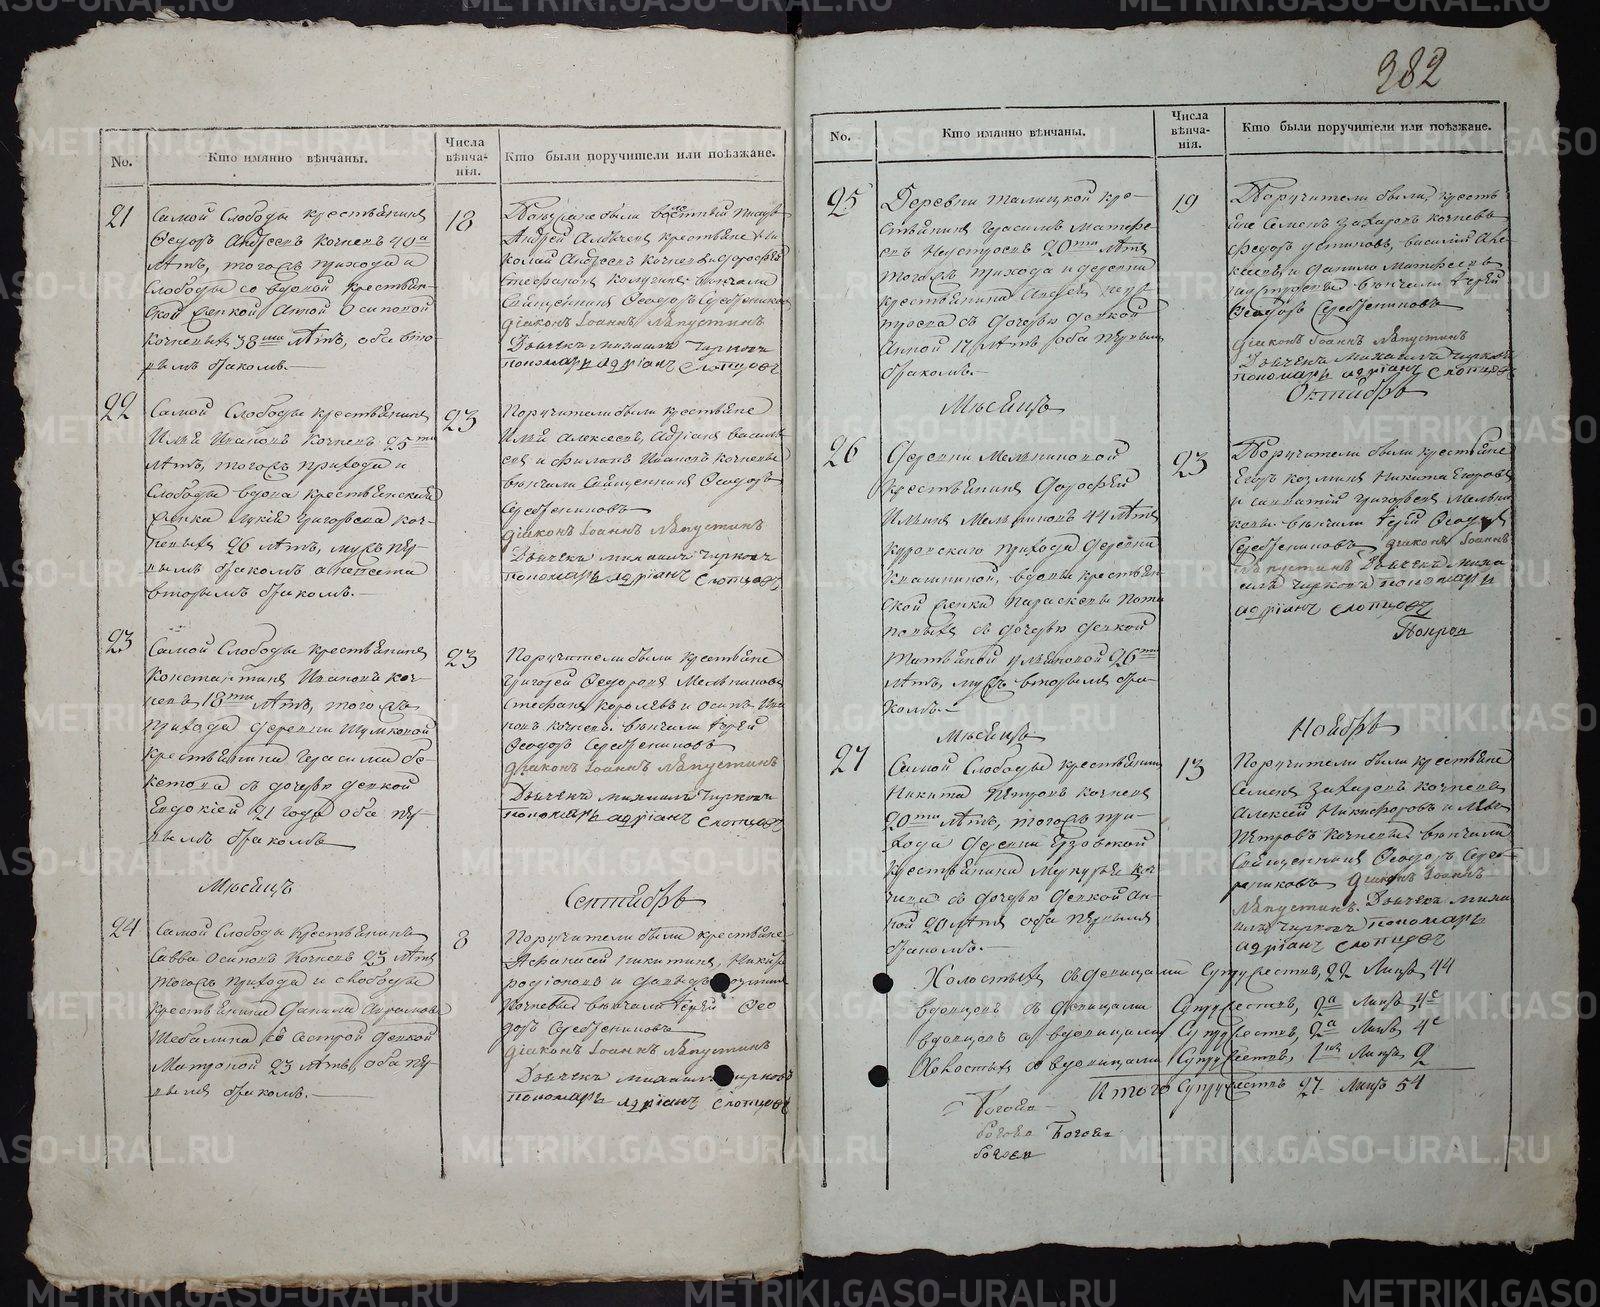 382
No.
Кто имянно вѣнчаны.
Числа вѣнча-
нія.
Кто были поручители или поѣзжане.
21
Самой Слободы крестьянинъ
Ѳедоръ Андреевъ Кочневъ 40а
лѣтъ, тогожъ прихода и
Слободы со вдовой крестьян-
ской женкой Анной Осиповой
Кочневыхъ 38ми лѣтъ, оба вто-
рымъ бракомъ.
18
были
Андрей крестьяне Ни-
колай Андреевъ Кочневъ
вѣнчали
Священникъ Ѳеодоръ Серебрениковъ
діаконъ Іоаннъ Лапустинъ
Дьячекъ михаилъ Чирковъ
пономарь адріанъ Слопцовъ
22
Самой Слободы крестьянинъ
Илья Ивановъ Кочневъ 25ти
лѣтъ, тогожъ прихода и
Слободы вдова крестьянская
женка Григорьева Коч-
невыхъ 26 лѣтъ, мужъ пер-
вымъ бракомъ а невеста
вторымъ бракомъ.
23
Поручители были крестьяне
Илья Алексеевъ, Адріанъ Василь-
евъ и Ивановъ Кочневы
вѣнчали Священникъ Ѳеодоръ
Серебрениковъ
діаконъ Іоаннъ Лапустинъ
Дьячекъ михаилъ Чирковъ
пономарь адріанъ Слопцовъ
23
Самой Слободы крестьянинъ
Константинъ Ивановъ Коч-
невъ 18ти лѣтъ, тогожъ
прихода деревни Шумковой
крестьянина Герасима Бе-
кетова съ дочерью девкой
Евдокіей 21 года оба пер-
вымъ бракомъ
23
Поручители были крестьяне
Григорей Ѳедоровъ Мельниковъ
Стефанъ Королевъ и Осипъ Ива-
новъ Кочневъ. вѣнчали Іерей
Ѳеодоръ Серебрениковъ
діаконъ Іоаннъ Лапустинъ
Дьячекъ михаилъ Чирковъ
пономарь адріанъ Слопцовъ
Мѣсяцъ
Сентябрь
24
Самой Слободы Крестьянинъ
Савва Осиповъ Кочневъ 23 лѣтъ
тогожъ прихода и слободы
крестьянина Данила
Шебалина съ сестрой девкой
Матроной 23 лѣтъ, оба пер-
вымъ бракомъ.
8
Поручители были крестьяне
Афанасей Никитинъ,
родіоновъ и
Кочневы вѣнчали Іерей Ѳео-
доръ Серебрениковъ
діаконъ Іоаннъ Лапустинъ
Дьячекъ михаилъ Чирковъ
пономарь адріанъ Слопцовъ
No.
Кто имянно вѣнчаны.
Числа
вѣнча-
нія.
Кто были поручители или поѣзжане.
25
Деревни Талицкой кре-
стьянинъ Герасимъ Матфе-
евъ Неустроевъ 20ти лѣтъ
тогожъ прихода и деревни
крестьянина Андрея Неу-
строева съ дочерью девкой
Анной 17 лѣтъ оба первымъ
бракомъ.
19
Поручители были, кресть-
яне Семенъ Захаровъ Кочневъ
Федоръ Устиновъ, Василій Але-
ксеевъ и Данило Матфеевъ
Неустроевы вѣнчали Іерей
Ѳеодоръ Серебрениковъ
діаконъ Іоаннъ Лапустинъ
Дьячекъ Михаилъ Чирковъ
пономарь адріанъ Слопцовъ
Мѣсяцъ
Октябрь
26
Деревни Мельниковой
крестьянинъ Дорофей
Ильинъ Мельниковъ 44 лѣтъ
прихода деревни
вдовы крестьян-
ской женки Параскевы Пота-
повыхъ съ дочерью девкой
Татьяной Ульяновой 26ти
лѣтъ, мужъ вторымъ бра-
комъ.
23
Поручители были крестьяне
Егоръ Козминъ Никита Егоровъ
и Григорьевъ Мельни-
ковы. вѣнчали Іерей Ѳеодоръ
Серебрениковъ діаконъ Іоаннъ
Лапустинъ Дьячекъ миха-
илъ Чирковъ пономарь
адріанъ Слопцовъ
Мѣсяцъ
Ноябрь
27
Самой Слободы крестьянинъ
Никита Петровъ Кочневъ
20ти лѣтъ, тогожъ при-
хода деревни Ерзовской
крестьянина Меркурья Коч-
нева съ дочерью девкой Ан-
ной 20 лѣтъ оба первымъ
бракомъ.
13
Поручители были крестьяне
Семенъ Захаровъ Кочневъ
Алексей Никифоровъ и Левъ
Петровъ Кочневы вѣнчали
Священникъ Ѳеодоръ Сереб-
рениковъ діаконъ Іоаннъ
Лапустинъ. Дьячекъ миха-
илъ Чирковъ пономарь
адріанъ Слопцовъ
Холостыхъ съ девицами Супружествъ, 22 Лицъ 44
вдовцовъ съ девицами Супружествъ, 2а Лицъ 4е
вдовцовъ со вдовицами Супружествъ, 2а Лицъ 4е
Холостыхъ со вдовицами Супружествъ, 1но Лицъ 2
Итого Супружествъ 27 Лицъ 54